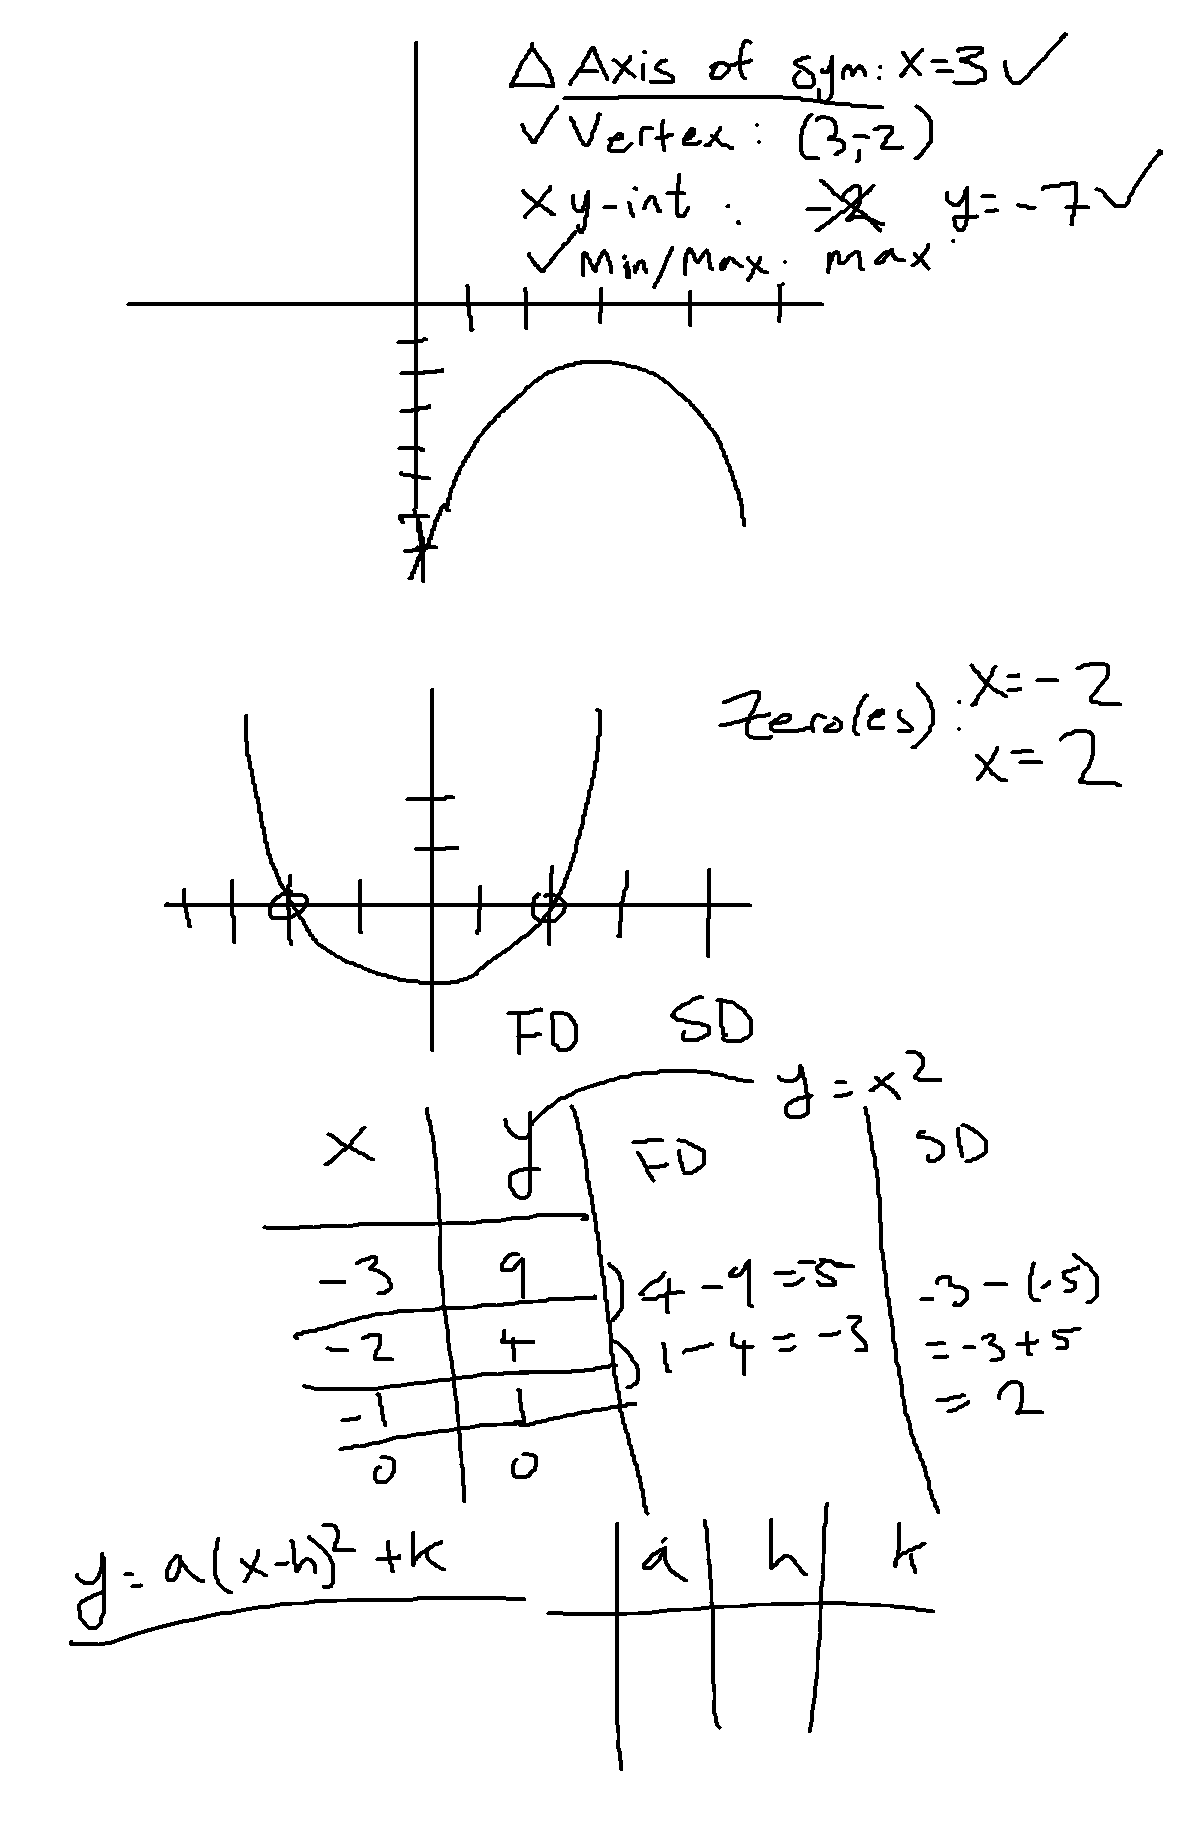 △ Axis of sym: x=3 ✓
✓ Vertex: (3,-2)
x y-int: -2 y=-7 ✓
✓ Min/Max: max
Zero(es): x=-2
x=2
FD SD
y=x²
x y FD SD
-3 9 4-9=-5 -3-(-5)
-2 4 1-4=-3 =-3+5
-1 1 =2
0 0
y=a(x-h)²+k a h k